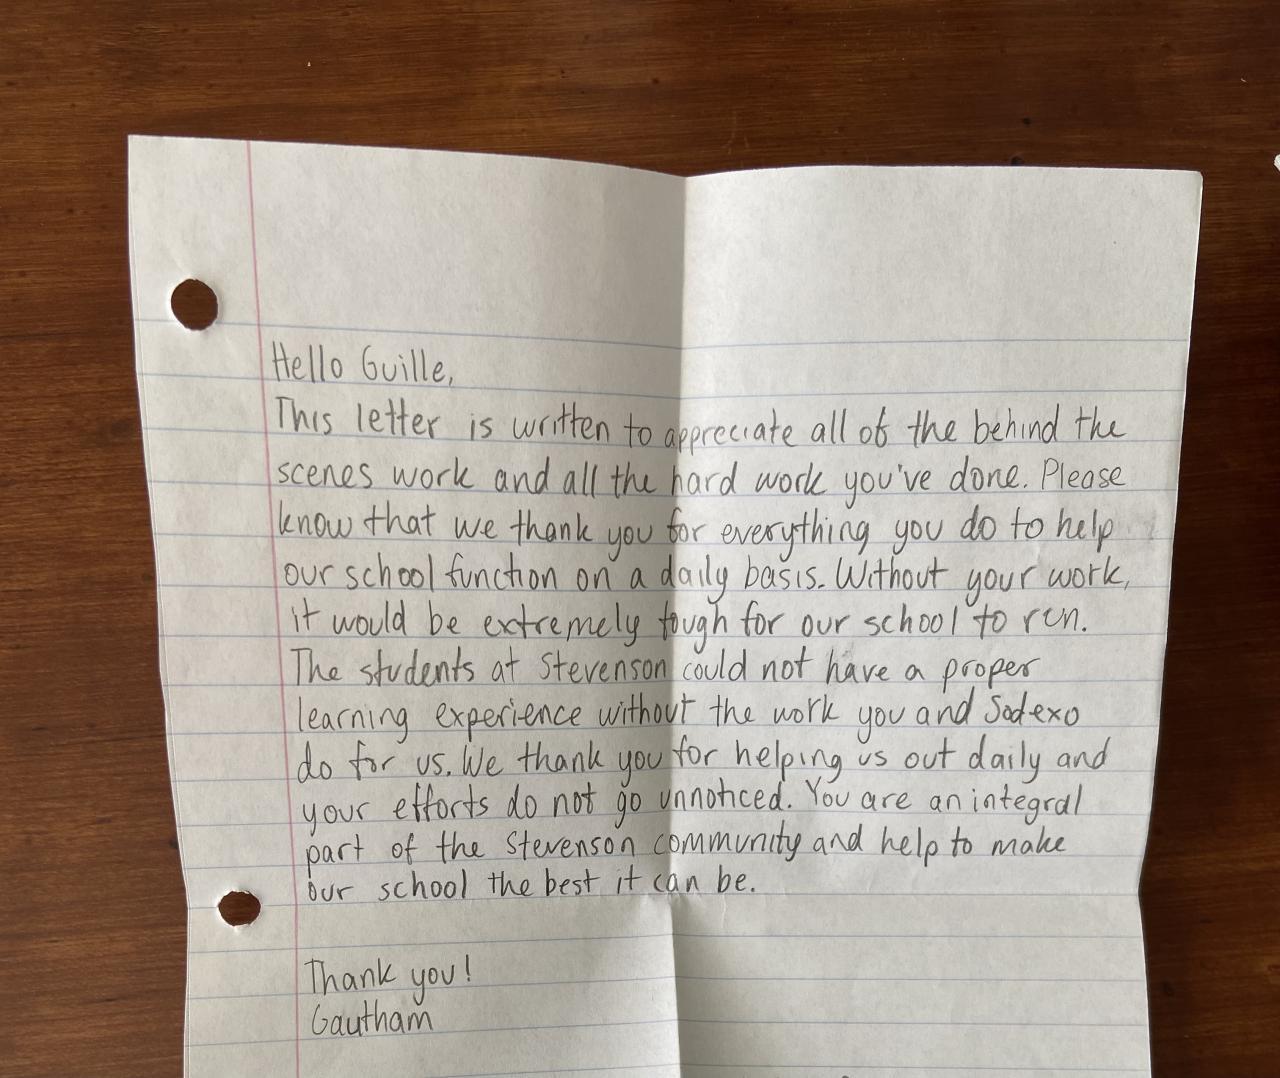 Hello Guille,
This letter is written to appreciate all of the behind the
scenes work and all the hard work you've done. Please
know that we thank you for everything you do to help
our school function on a daily basis. Without your work,
it would be extremely tough for our school to run.
The students at Stevenson could not have a proper
learning experience without the work you and Sodexo
do for us. We thank you for helping us out daily and
your efforts do not go unnoticed. You are an integral
part of the Stevenson community and help to make
our school the best it can be.
Thank you!
Gautham